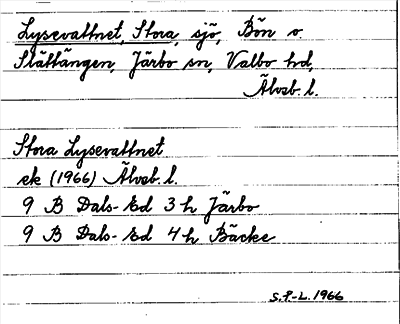 Lysevattnet, Stora, sjö, Bön o.
Slättängen, Järbo sn, Valbo hd,
Älvsb. l.
Stora Lysevattnet
ek (1966) Älvsb. l.
9 B Dals-Ed 3 h Järbo
9 B Dals-Ed 4 h Bäcke
S.F-L. 1966